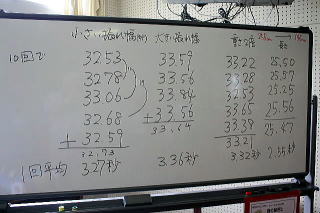 小さい振れ幅 大きい振れ幅 重さ2倍 長さ
10回で 3253 33.59 33.22 25.50
3278 33.56 33.28 25.57
33.06 33.84 32.53 25.25
3268 33.56 33.65 25.56
+ 32.59 33.64 33.39 25.47
32.73 33.21
1回平均 3.27秒 3.36秒 3.32秒 2.55秒